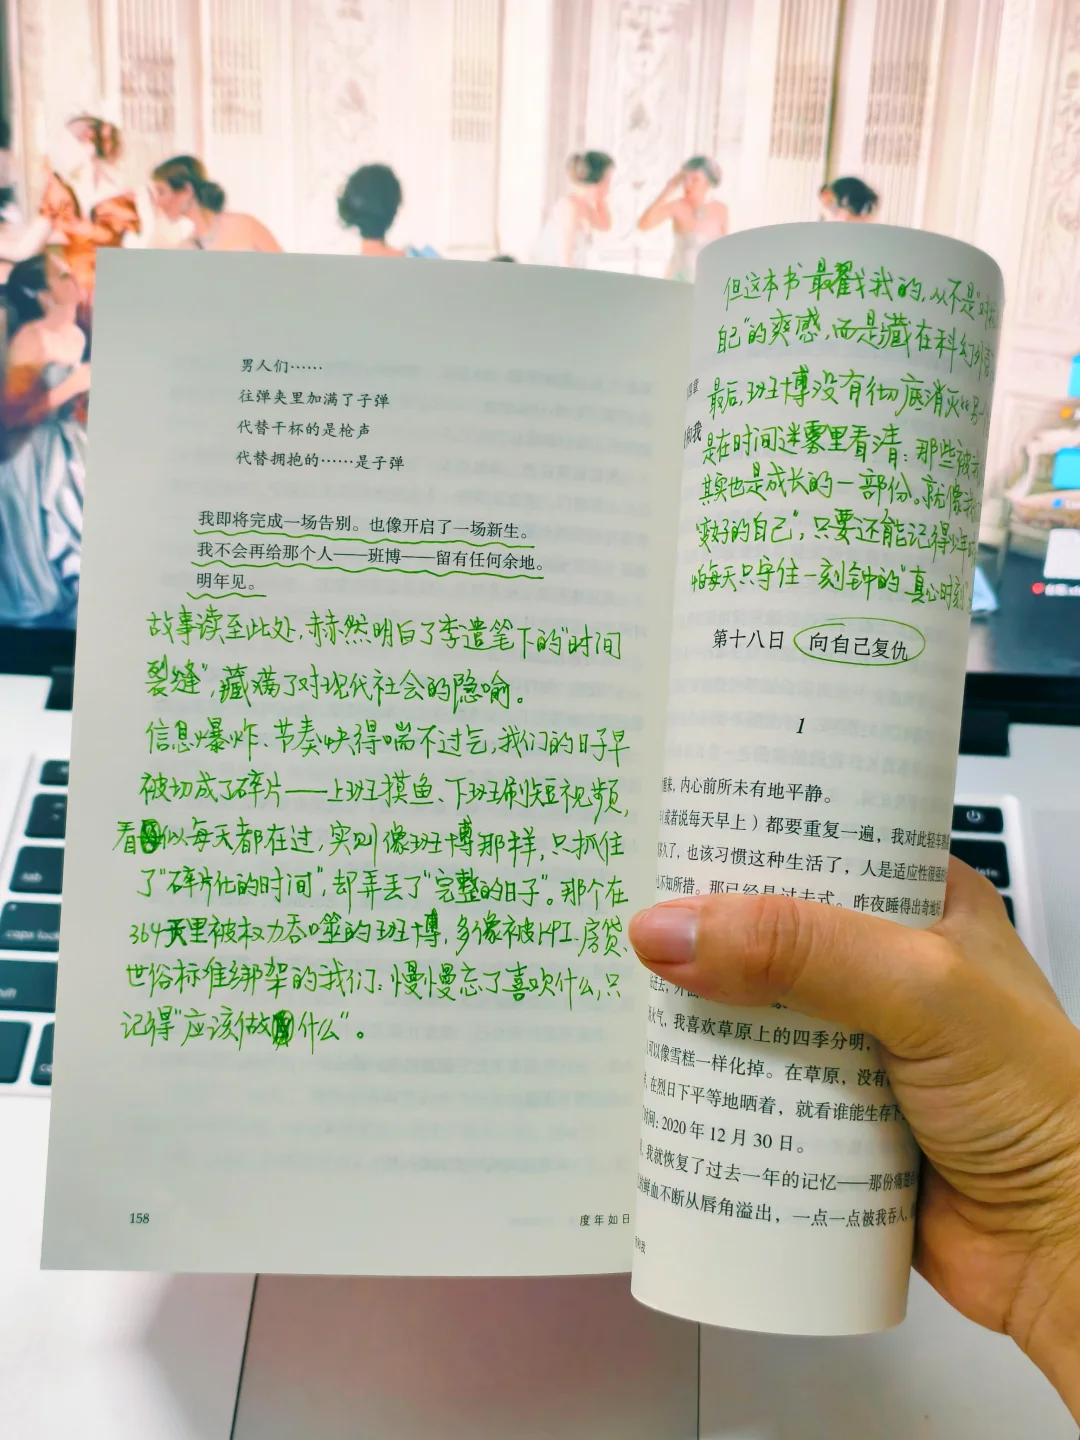 男人们……
往弹夹里加满了子弹
代替干杯的是枪声
代替拥抱的……是子弹
我即将完成一场告别。也像开启了一场新生。
我不会再给那个人——班博——留有任何余地。
明年见。
故事读至此处,赫然明白了李遣笔下的"时间
裂缝",藏满了对现代社会的隐喻。
信息爆炸、节奏快得喘不过气,我们的日子早
被切成了碎片——上班摸鱼、下班刷短视频,
看似每天都在过,实则像班博那样,只抓住
了"碎片化的时间",却弄丢了"完整的日子"。那个在
364天里被权力吞噬的班博,多像被KPI、房贷、
世俗标准绑架的我们:慢慢忘了喜欢什么,只
记得"应该做什么"。
158
度年如日
但这本书最戳我的,从不是"对抗
自己"的爽感,而是藏在科幻外壳
最后,班博没有彻底消灭"另一个
是在时间迷雾里看清:那些被
其实也是成长的一部份。就像我
"变好的自己",只要还能记得少年时
怕每天只守住一刻钟的"真心时刻"
和我
第十八日 向自己复仇
1
醒来,内心前所未有地平静。
(或者说每天早上)都要重复一遍,我对此轻车熟
久了,也该习惯这种生活了,人是适应性很强的
不知所措。那已经是过去式。昨夜睡得出奇地
火气,我喜欢草原上的四季分明,
可以像雪糕一样化掉。在草原,没有
在烈日下平等地晒着,就看谁能生存下
时间:2020年12月30日。
我就恢复了过去一年的记忆——那份痛楚
鲜血不断从唇角溢出,一点一点被我吞入,